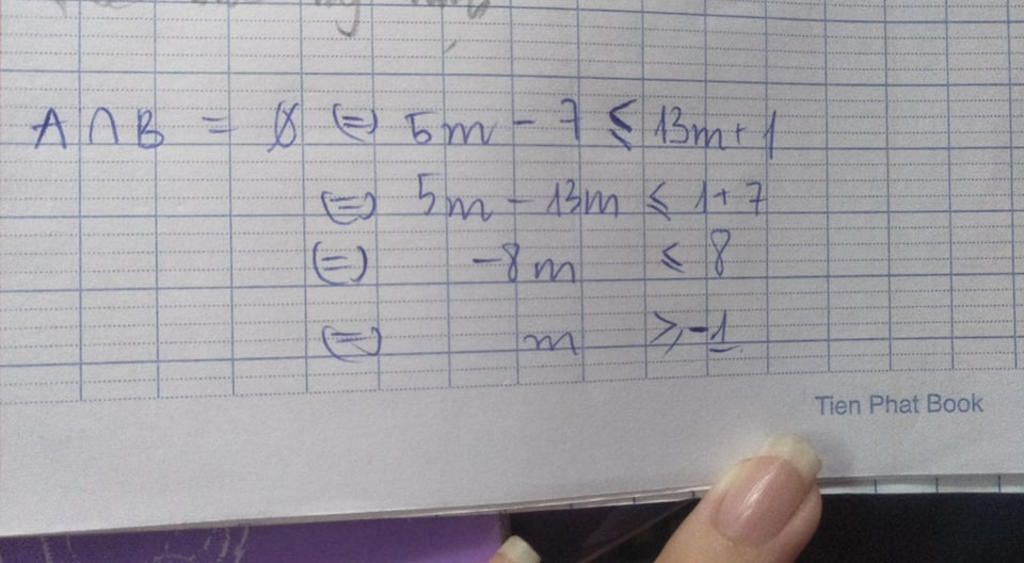 A ∩ B = ∅ (=) 5m - 7 ≤ 13m + 1
(=) 5m - 13m ≤ 1 + 7
(=) -8m ≤ 8
(=) m ≥ -1
Tien Phat Book